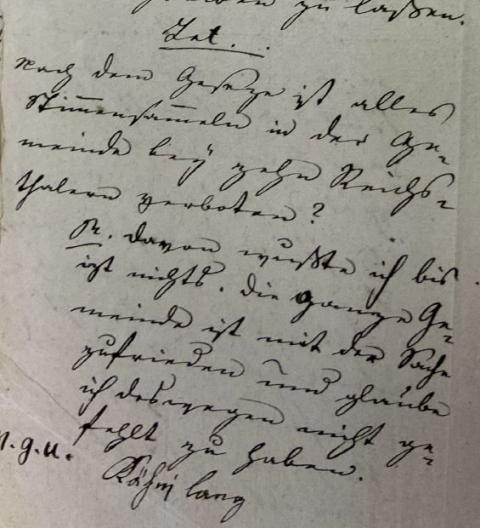 zu laßen.
Int.
Nach dem Geseze ist alles
Stimmensammeln in der Ge-
meinde bey zehn Reichs-
thalern verboten?
R. davon wußte ich bis
izt nichts. die ganze Ge-
meinde ist mit der Sache
zufrieden und glaube
ich deswegen nicht ge-
fehlt zu haben.
n. g. u.
lang